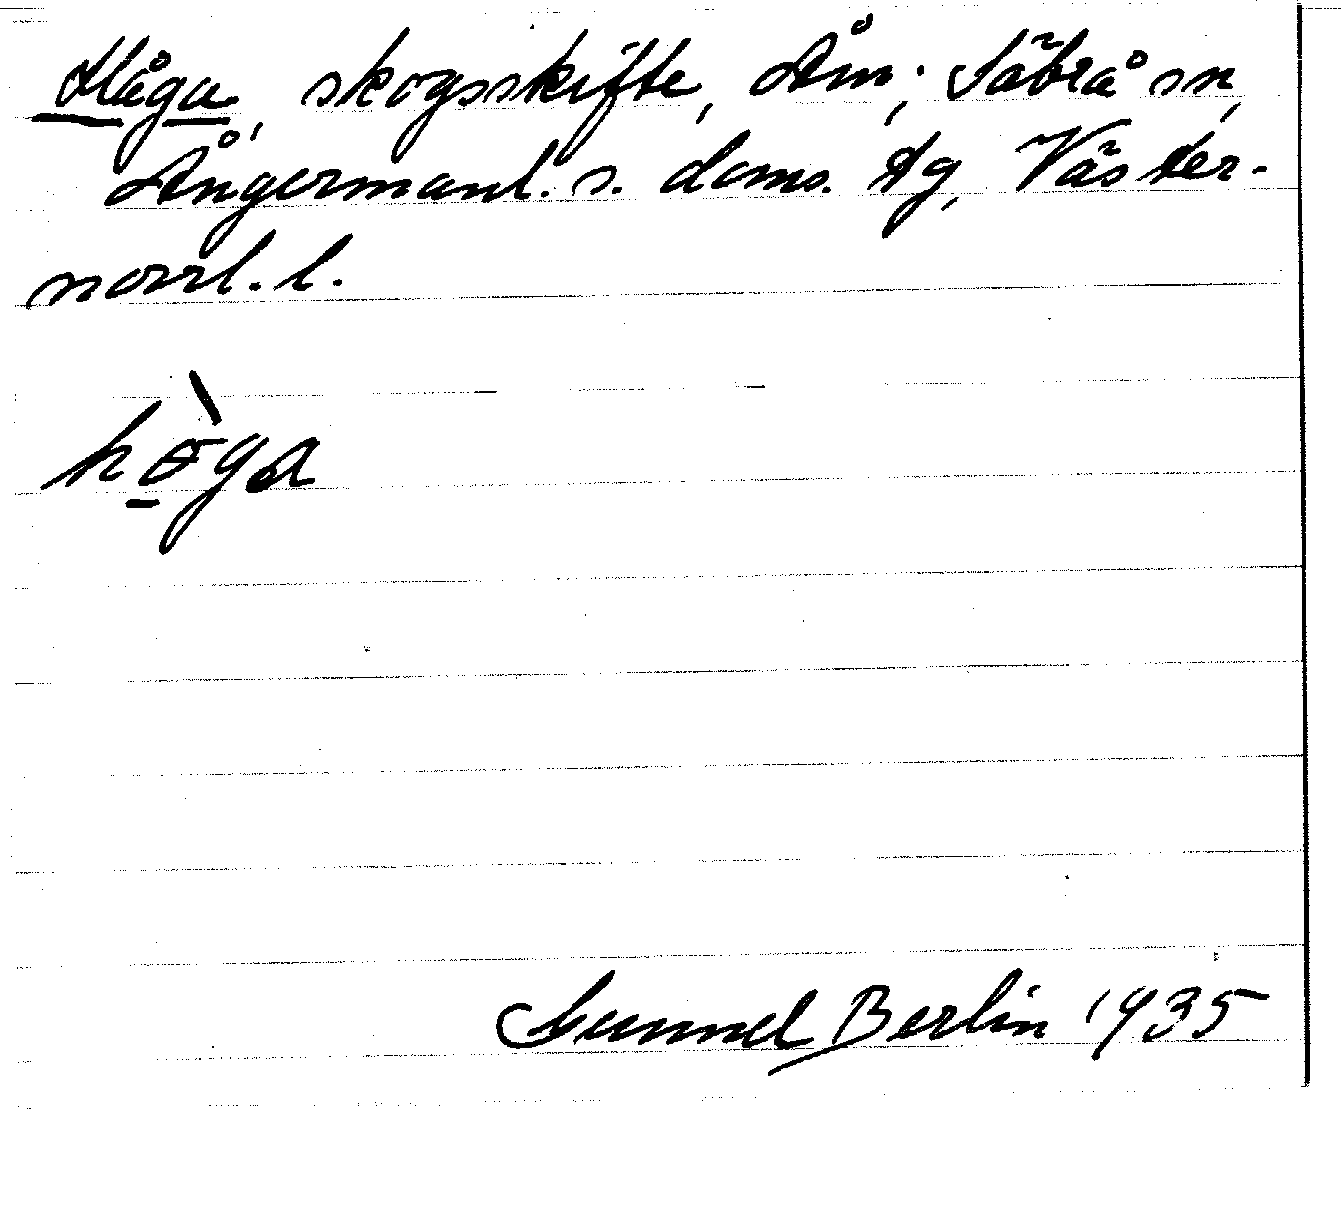 Håga, skogsskifte, Åm; Säbrå sn,
Ångermanl. s. doms. tg, Väster-
norrl. l.
hɵ̀ga
Gunnel Berlin 1935